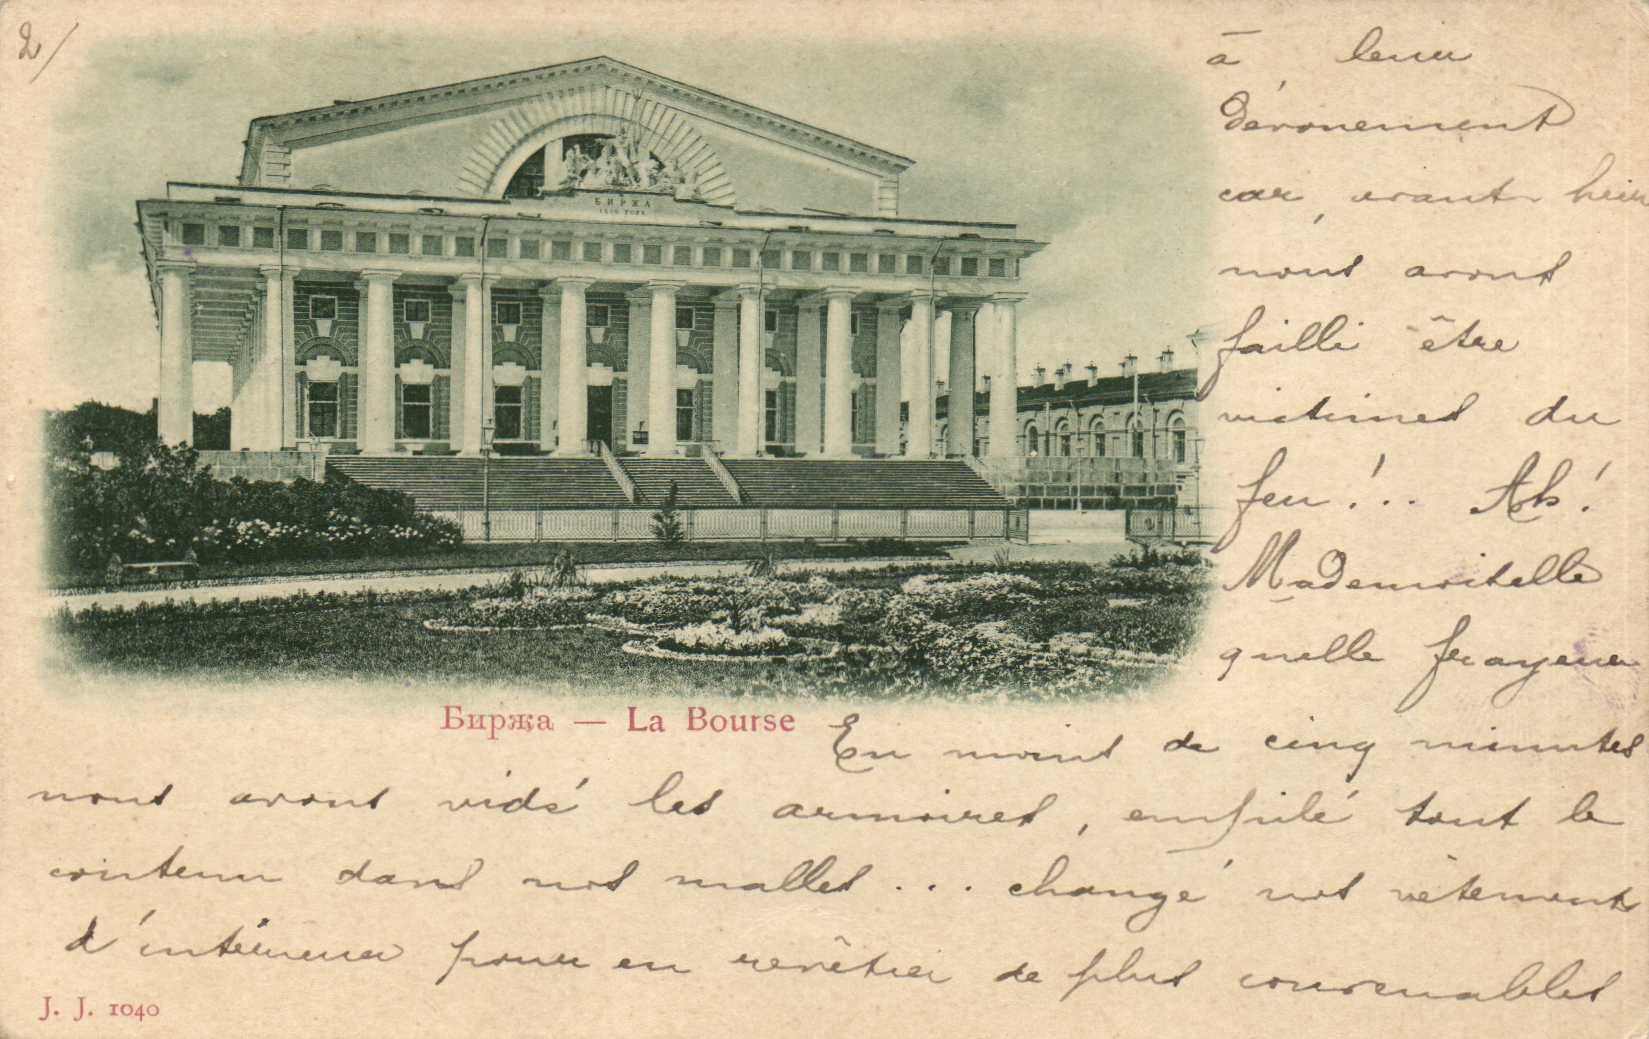 2/
à leur
dévouement
car, avant hier
nous avons
failli être
victimes du
feu!.. Ah!
Mademoiselle
quelle frayeur
БИРЖА
Биржа — La Bourse
En moins de cinq minutes
nous avons vidé les armoires, enfilé tout le
contenu dans nos malles... changé nos vêtements
d'intérieur pour en revêtir de plus convenables
J. J. 1040